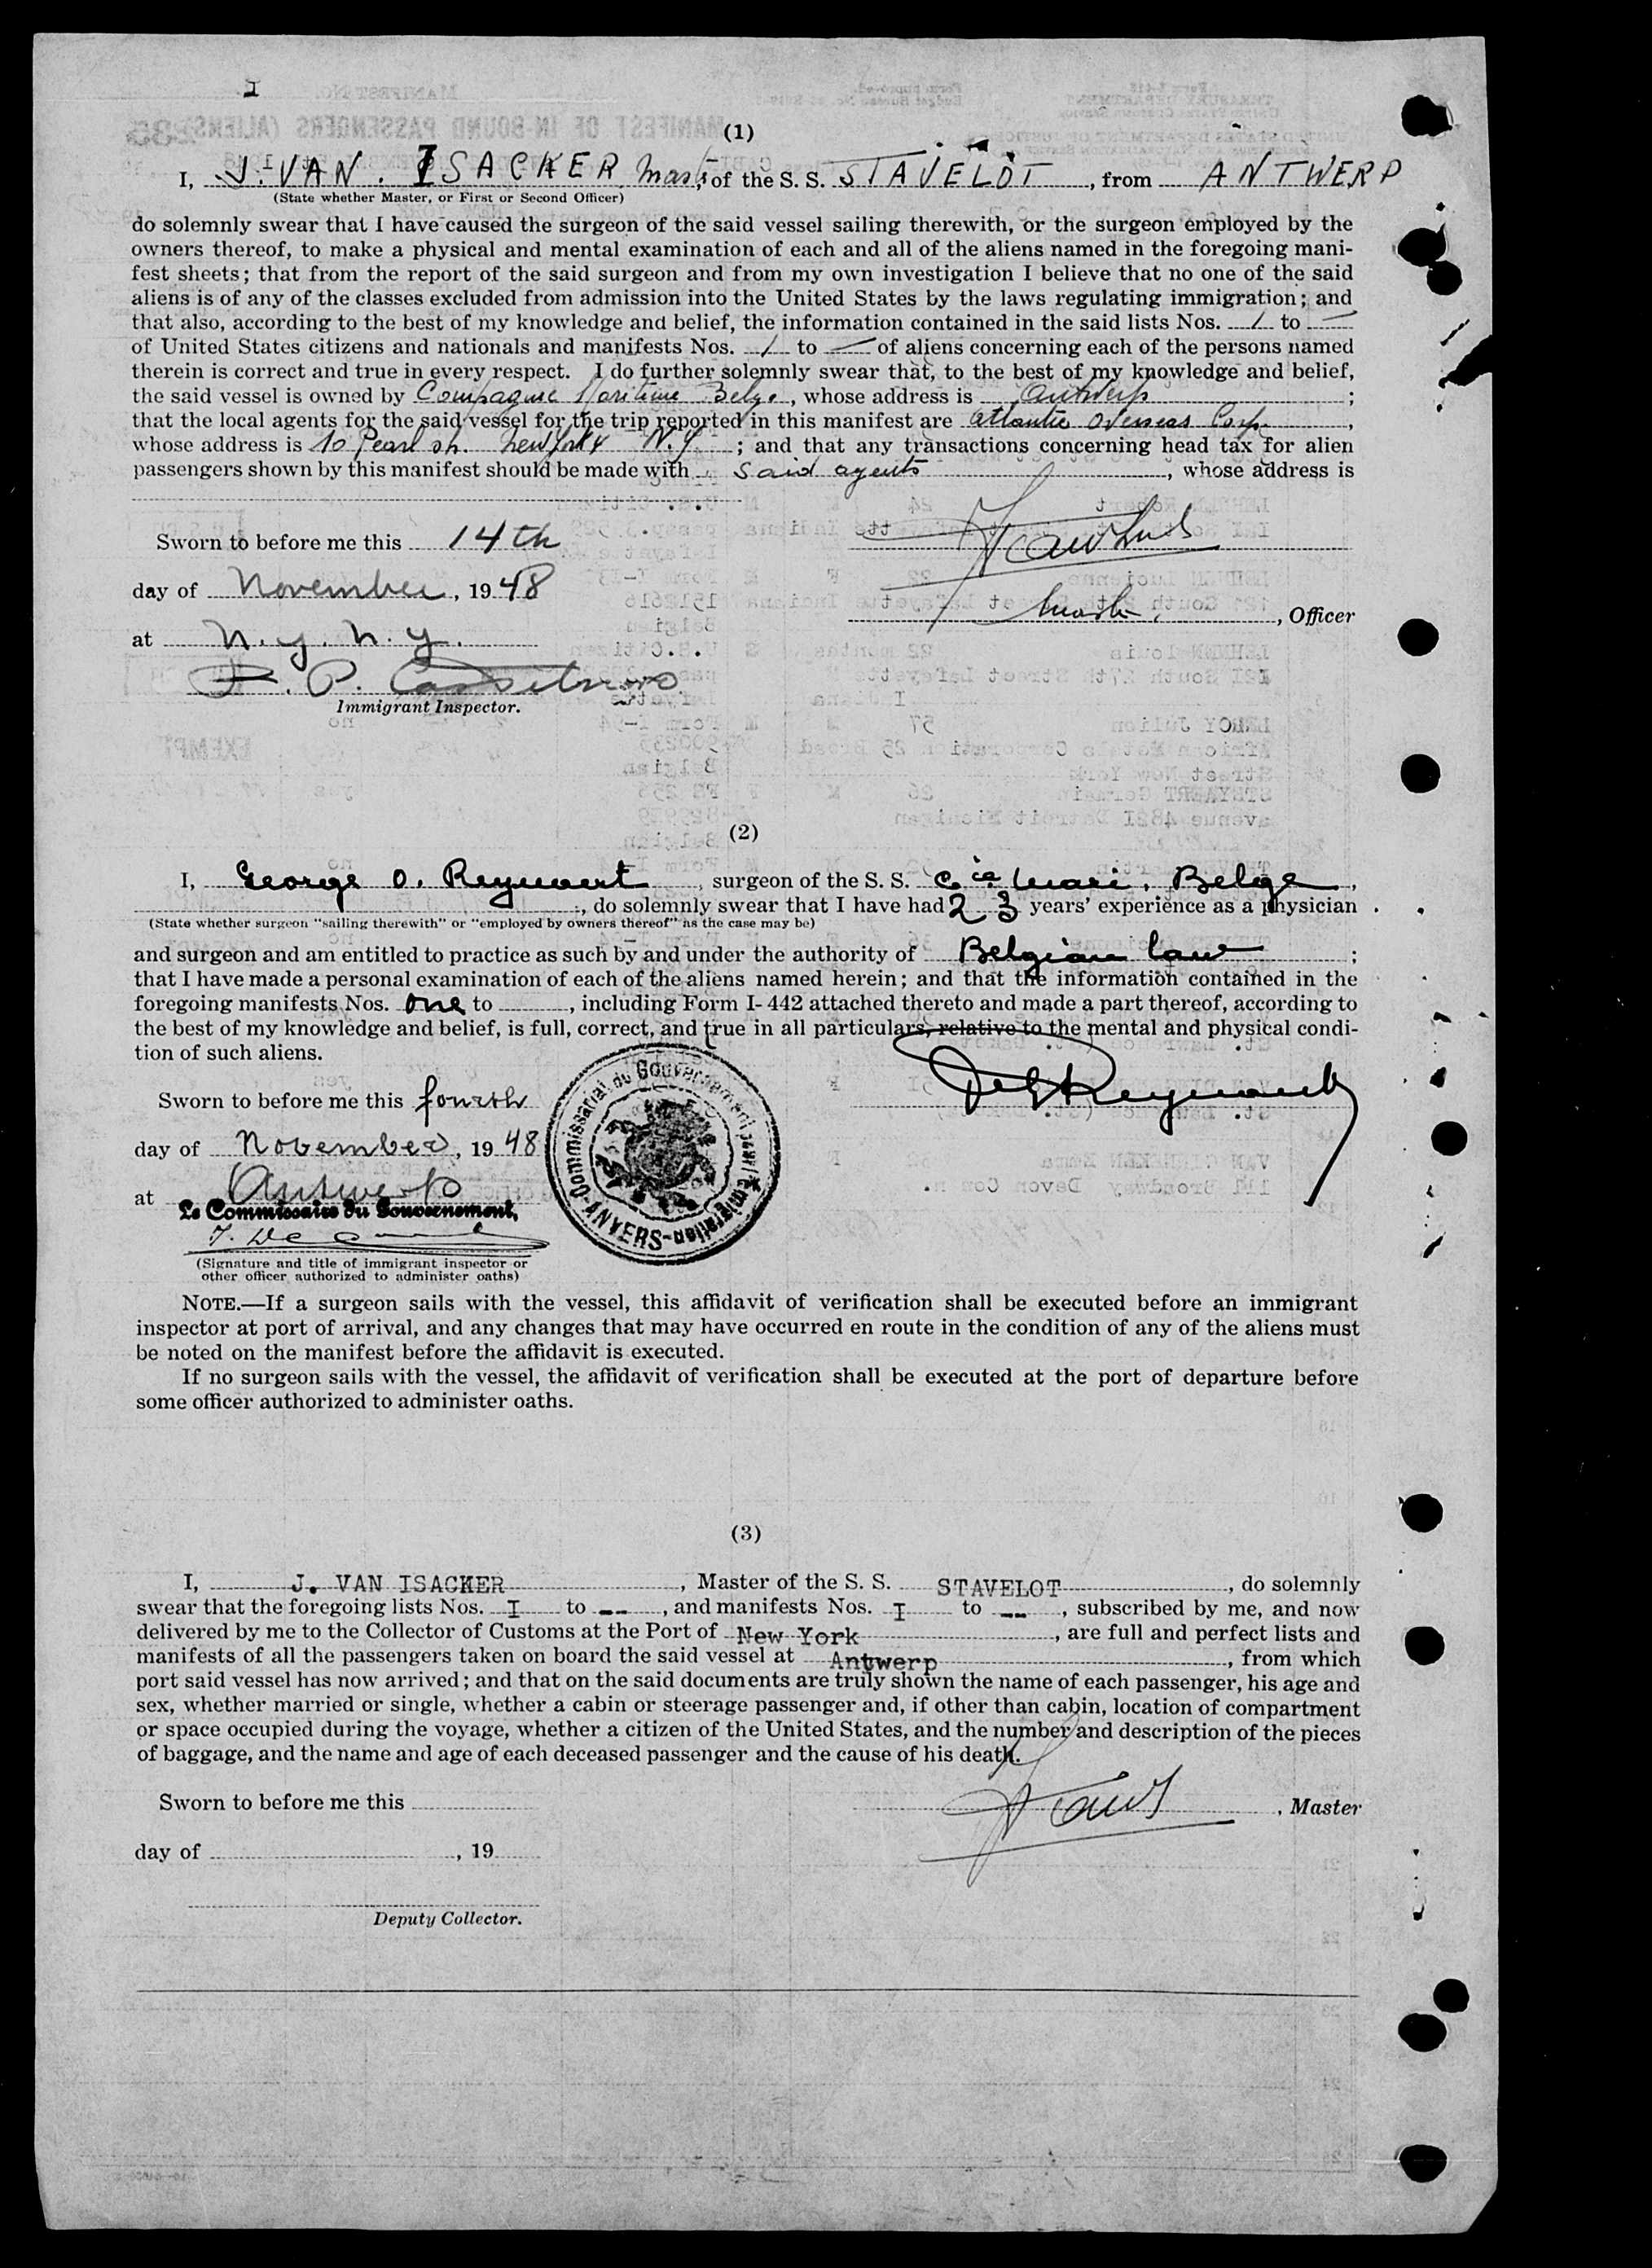 I
(1)
I, J. VAN. ISACKER, Mast. of the S. S. STAVELOT, from ANTWERP
(State whether Master, or First or Second Officer)
do solemnly swear that I have caused the surgeon of the said vessel sailing therewith, or the surgeon employed by the
owners thereof, to make a physical and mental examination of each and all of the aliens named in the foregoing mani-
fest sheets; that from the report of the said surgeon and from my own investigation I believe that no one of the said
aliens is of any of the classes excluded from admission into the United States by the laws regulating immigration; and
that also, according to the best of my knowledge and belief, the information contained in the said lists Nos. 1 to —
of United States citizens and nationals and manifests Nos. 1 to — of aliens concerning each of the persons named
therein is correct and true in every respect. I do further solemnly swear that, to the best of my knowledge and belief,
the said vessel is owned by Compagnie Maritime Belge, whose address is Antwerp;
that the local agents for the said vessel for the trip reported in this manifest are Atlantic Overseas Corp.,
whose address is 10 Pearl str. New York N.Y.; and that any transactions concerning head tax for alien
passengers shown by this manifest should be made with said agents, whose address is
Sworn to before me this 14th
day of November, 1948
at N.Y. N.Y.
, Officer
Immigrant Inspector.
(2)
I, George O. Reymaert, surgeon of the S. S. Cie Mari. Belge,
, do solemnly swear that I have had 23 years' experience as a physician
(State whether surgeon "sailing therewith" or "employed by owners thereof" as the case may be)
and surgeon and am entitled to practice as such by and under the authority of Belgian law;
that I have made a personal examination of each of the aliens named herein; and that the information contained in the
foregoing manifests Nos. one to , including Form I-442 attached thereto and made a part thereof, according to
the best of my knowledge and belief, is full, correct, and true in all particulars, relative to the mental and physical condi-
tion of such aliens.
Commissariat du Gouvernement pour l'émigration - ANVERS -
Sworn to before me this fourth
day of November, 1948
at Antwerp
Le Commissaire du Gouvernement,
(Signature and title of immigrant inspector or
other officer authorized to administer oaths)
NOTE.—If a surgeon sails with the vessel, this affidavit of verification shall be executed before an immigrant
inspector at port of arrival, and any changes that may have occurred en route in the condition of any of the aliens must
be noted on the manifest before the affidavit is executed.
If no surgeon sails with the vessel, the affidavit of verification shall be executed at the port of departure before
some officer authorized to administer oaths.
(3)
I, J. VAN ISACKER, Master of the S. S. STAVELOT, do solemnly
swear that the foregoing lists Nos. I to --, and manifests Nos. I to --, subscribed by me, and now
delivered by me to the Collector of Customs at the Port of New York, are full and perfect lists and
manifests of all the passengers taken on board the said vessel at Antwerp, from which
port said vessel has now arrived; and that on the said documents are truly shown the name of each passenger, his age and
sex, whether married or single, whether a cabin or steerage passenger and, if other than cabin, location of compartment
or space occupied during the voyage, whether a citizen of the United States, and the number and description of the pieces
of baggage, and the name and age of each deceased passenger and the cause of his death.
Sworn to before me this
, Master
day of , 19
Deputy Collector.